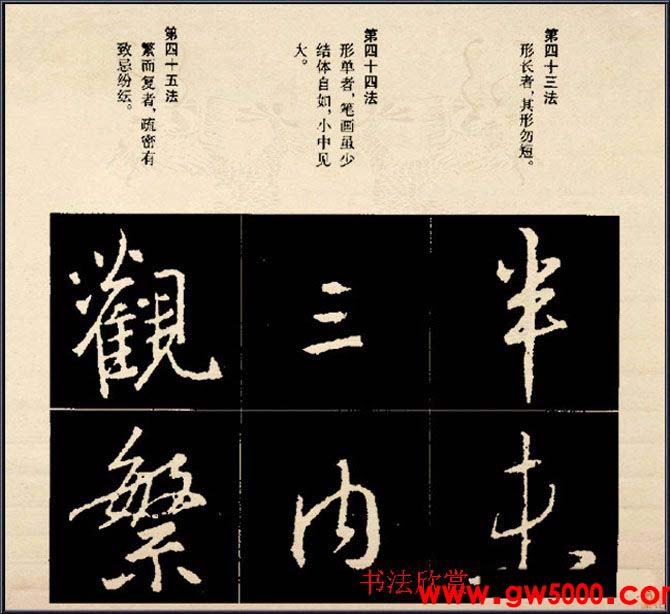 第四十三法
形长者，其形勿短。
第四十四法
形单者，笔画虽少
结体自如，小中见
大。
第四十五法
繁而复者，疏密有
致忌纷纭。
半
三
觀
内
繁
书法欣赏
www.gw5000.com